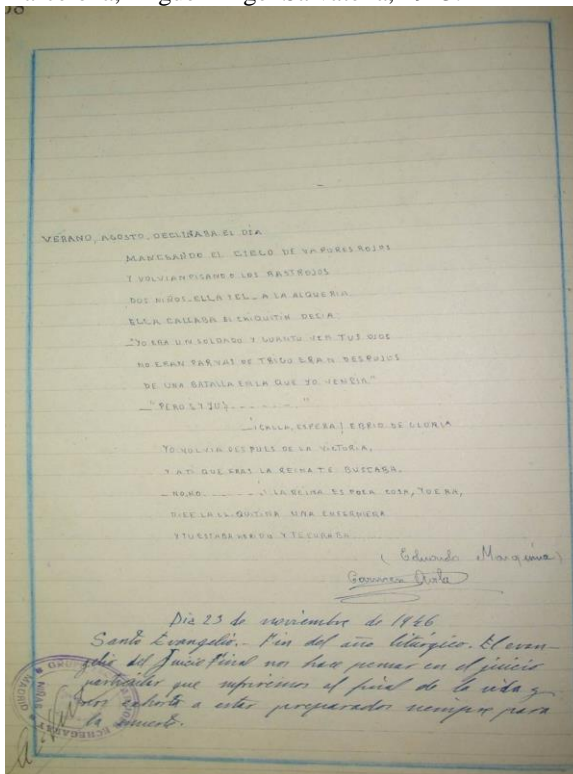 VERANO, AGOSTO, DECLINABA EL DÍA
MANCHANDO EL CIELO DE VAPORES ROJOS
Y VOLVIAN PISANDO LOS RASTROJOS
DOS NIÑOS, ELLA Y EL, A LA ALQUERIA
ELLA CALLABA EL CHIQUITÍN DECIA
"YO ERA UN SOLDADO Y CUANTO VEN TUS OJOS
NO ERAN PARVAS DE TRIGO ERAN DESPOJOS
DE UNA BATALLA EN LA QUE YO VENCIA."
—"PERO ¿Y YO? - - - - - - "
—¡CALLA, ESPERA! EBRIO DE GLORIA
YO VOLVIA DESPUES DE LA VICTORIA,
Y A TI QUE ERAS LA REINA TE BUSCABA.
—NO, NO. - - - - - ¡ LA REINA ES POCA COSA, YO ERA,
DICE LA CHIQUITINA UNA ENFERMERA
Y TU ESTABAS HERIDO Y TE CURABA.
(Eduardo Marquina)
Carmen Avila
Dia 23 de noviembre de 1946
Santo Evangelio.- Fin del año litúrgico. El evan-
gelio del Juicio Final nos hace pensar en el juicio
particular que sufriremos al final de la vida y
nos exhorta a estar preparados siempre para
la muerte.
GRUPO
ECHEGARAY
NIÑAS
MADRID